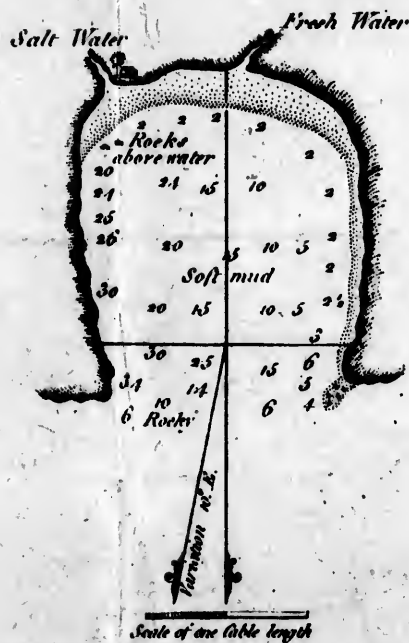 Fresh Water
Salt Water
2 2 2 2
Rocks
above water
2
20 24 15 10 2
24
25 2
26 20 15 10 5
Soft mud 2
30 20 15 10 5 2½
3
30 25 15 6
34 14 5
6 10 6 4
Rocky
Variation 10° E.
Scale of one Cable length